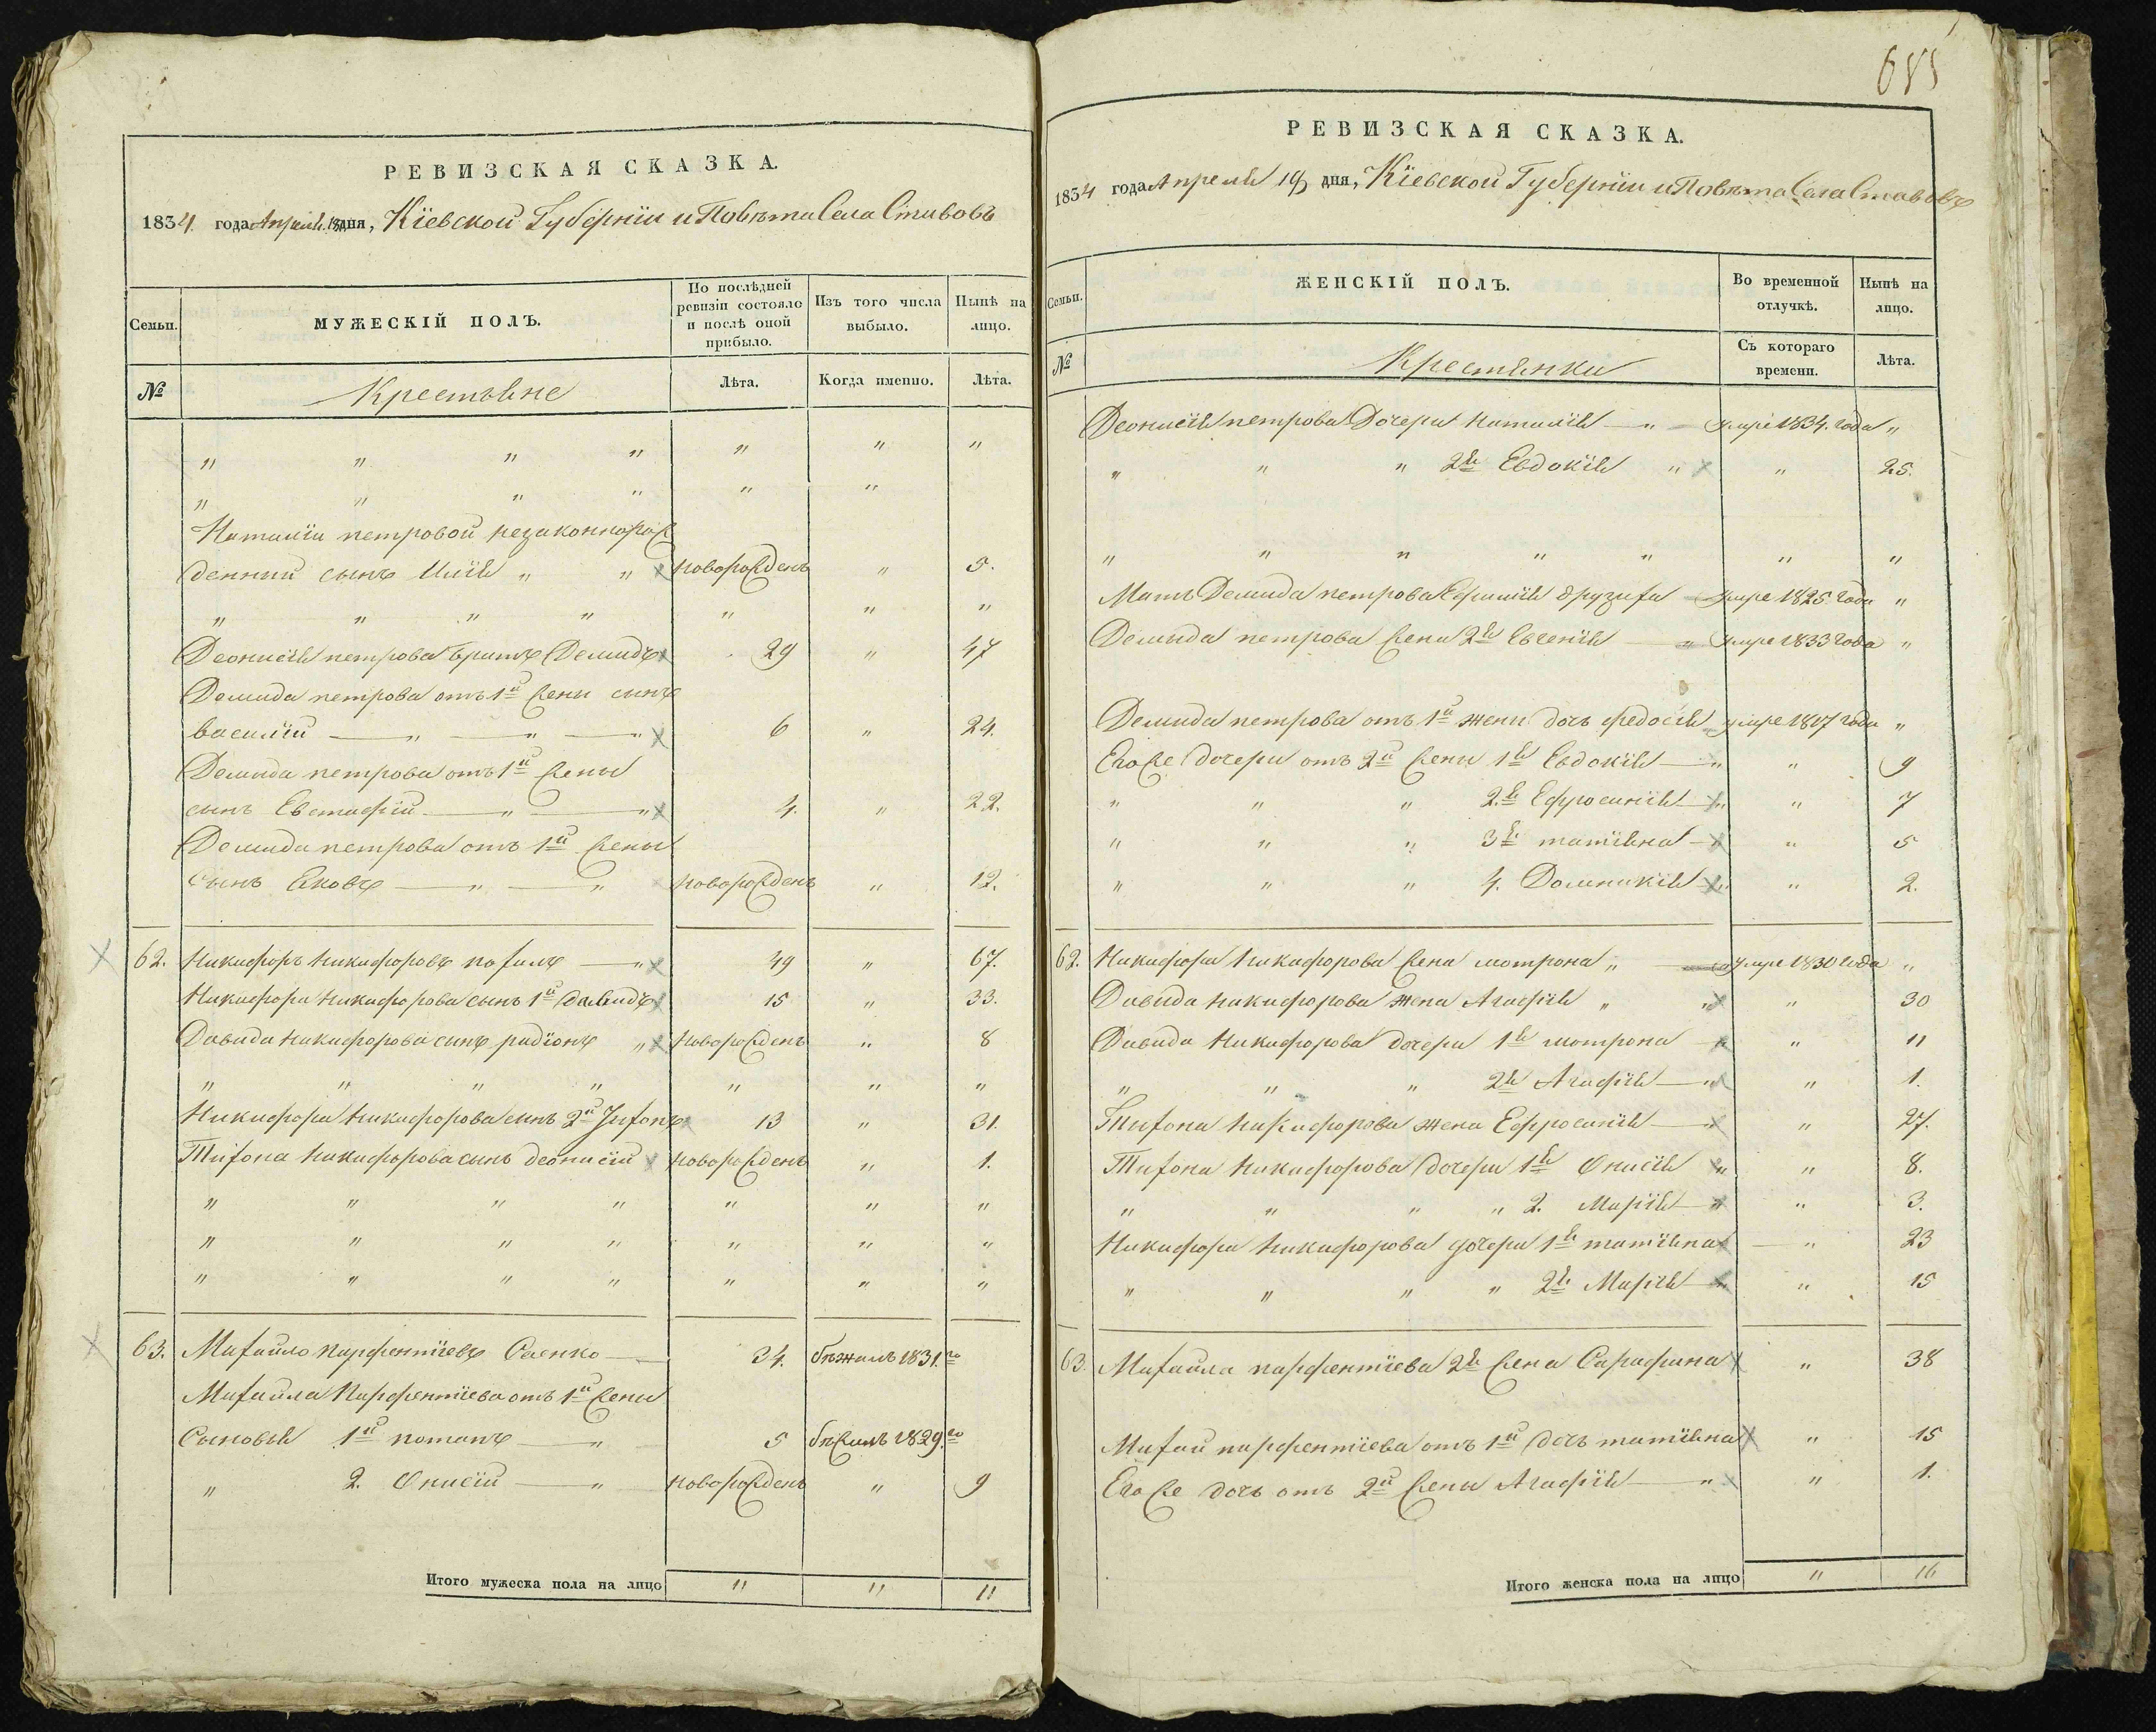 РЕВИЗСКАЯ СКАЗКА.
1834. года Апреля 18 дня, Кіевской Губерніи и Повѣта Села Ставовъ
Семьи.
МУЖЕСКІЙ ПОЛЪ.
По послѣдней ревизіи состояло и послѣ оной прибыло.
Изъ того числа выбыло.
Нынѣ на лицо.
№
Крестьяне
Лѣта.
Когда именно.
Лѣта.
" " " " " " "
" " " " " "
Наталіи петровой незаконнорож
денный сынъ Илія " " новорожденъ " 5.
" " " " " " "
Деонисія петрова братъ Демидъ 29 " 47
Демида петрова отъ 1й жены сынъ
василій " " " 6 " 24.
Демида петрова отъ 1й жены
сынъ Евстафій " " 4. " 22.
Демида петрова отъ 1й жены
сынъ Яковъ " " новорожденъ " 12.
62. Никифоръ Никифоровъ " 49 " 67.
Никифора Никифорова сынъ 1й Давидъ 15 " 33.
Давида Никифорова сынъ радіонъ " новорожденъ " 8
" " " " " " "
Никифора Никифорова сынъ 2й Тихонъ 13 " 31.
Тихона Никифорова сынъ деонисій новорожденъ " 1.
" " " " " " "
" " " " " " "
" " " " " " "
63. Михайло Парфентіевъ Саенко 34. бѣжалъ 1831.го
Михайла Парфентіева отъ 1й жены
Сыновья 1й потапъ " 5 бѣжалъ 1829.го
" 2. Онисій " новорожденъ " 9
Итого мужеска пола на лицо " " 11
685
РЕВИЗСКАЯ СКАЗКА.
1834 года Апреля 18 дня, Кіевской Губерніи и Повѣта Села Ставовъ
Семьи.
ЖЕНСКІЙ ПОЛЪ.
Во временной отлучкѣ.
Нынѣ на лицо.
№
Крестянки
Съ котораго времени.
Лѣта.
Деонисія петрова Дочери Наталія " умре 1834. года "
" " " 2я Евдокія " " 25.
" " " " " " "
Мать Демида петрова умре 1825 года "
Демида петрова жена 2я Евгенія " умре 1833 года "
Демида петрова отъ 1й жени дочь федосія умре 1817 года "
Егоже дочери отъ 2й жени 1я Евдокія " " 9
" " " 2.я Ефросинія " " 7
" " " 3я татіяна " 5
" " " 4. Домникія " " 2.
62. Никифора Никифорова жена мотрона " умре 1830 года "
Давида никифорова жена Агафія " " " 30
Давида Никифорова дочери 1я мотрона " " 11
" " " 2я Агафія " " 1.
Тихона Никифорова жена Ефросинія " 27.
Тихона Никифорова дочери 1я Онисія " " 8.
" " " " 2. Марія " " 3.
Никифора Никифорова дочери 1я татіяна " 23
" " " " 2я Марія " " 15
63. Михайла парфентіева 2я жена Сарафина " 38
Михай парфентіева отъ 1й дочь татіяна " 15
Егоже дочь отъ 2й жены Агафія " " 1.
Итого женска пола на лицо " 16